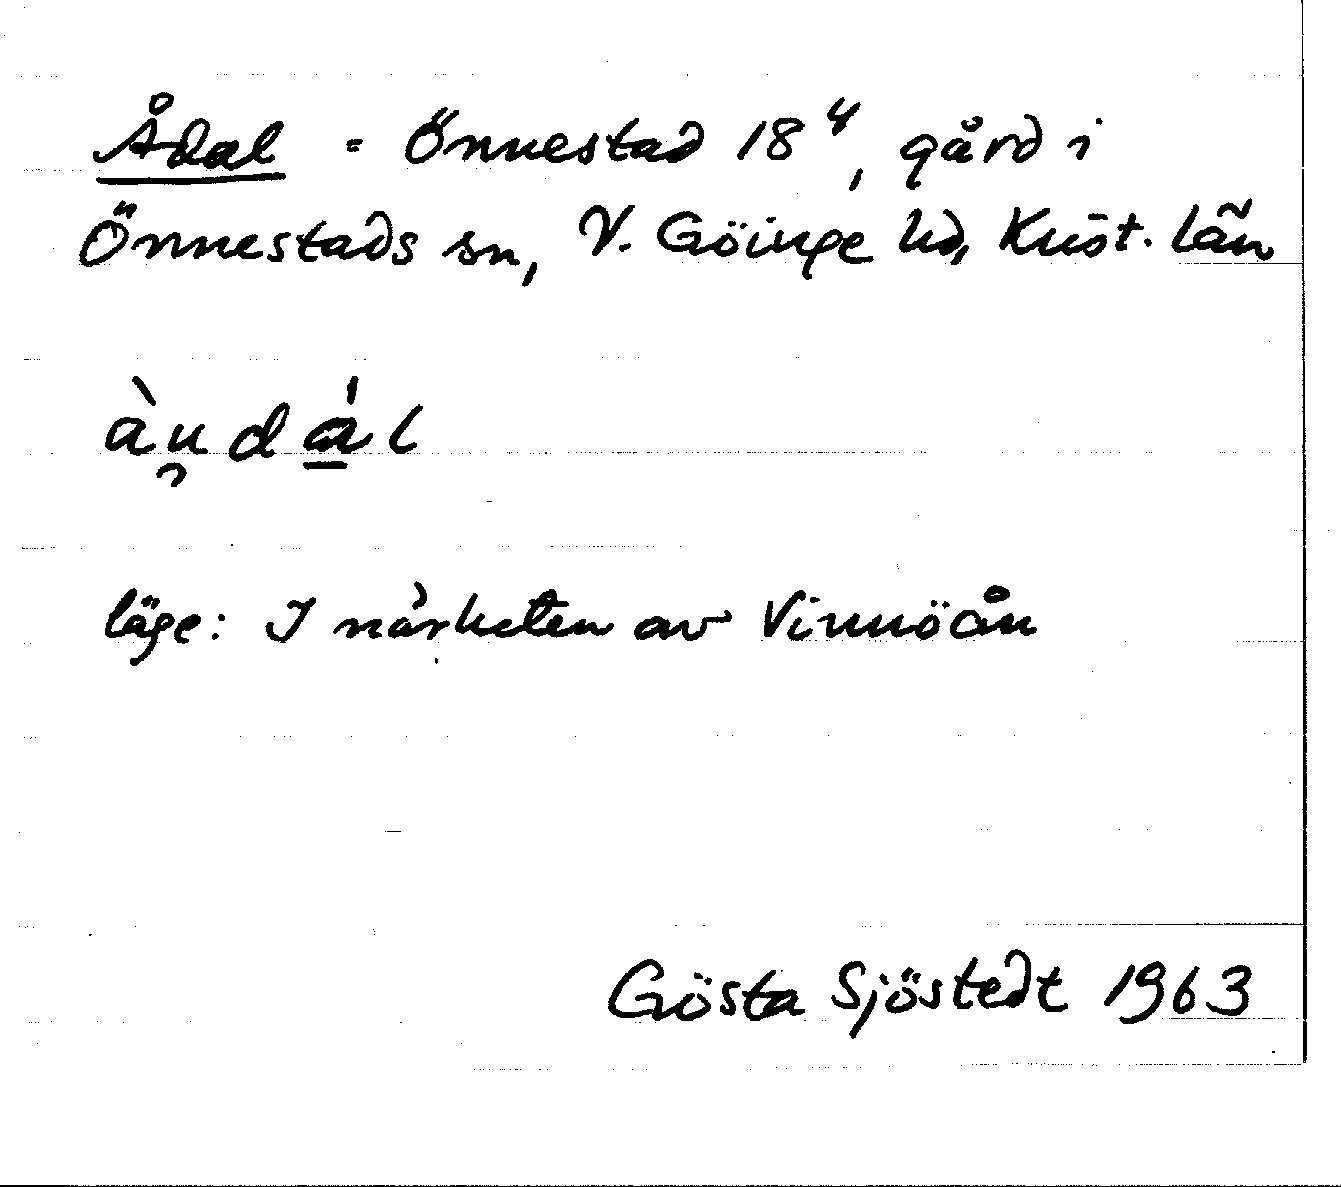 Ådal = Önnestad 18⁴, gård i
Önnestads sn, V. Göinge hd, Krist. län
àu̯dá̱l
läge: I närheten av Vinnöån
Gösta Sjöstedt 1963